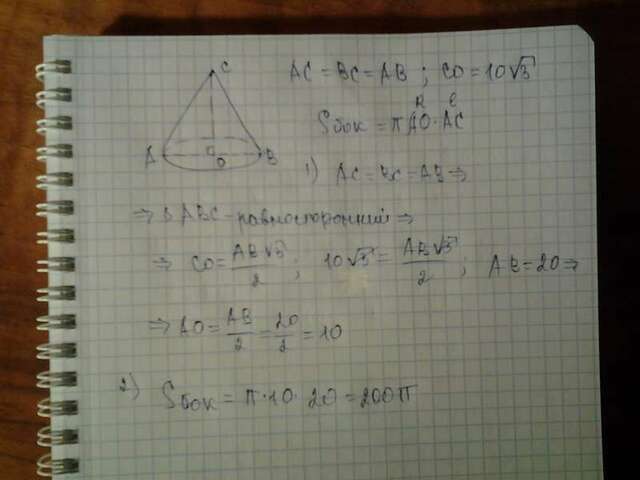 C
A
O
B
AC = BC = AB ; CO = 10√3
R l
Sбок = π AO · AC
1) AC = BC = AB ⇒
⇒ Δ ABC - равносторонний ⇒
⇒ CO = AB√3/2 ; 10√3 = AB√3/2 ; AB = 20 ⇒
⇒ AO = AB/2 = 20/2 = 10
2) Sбок = π · 10 · 20 = 200π